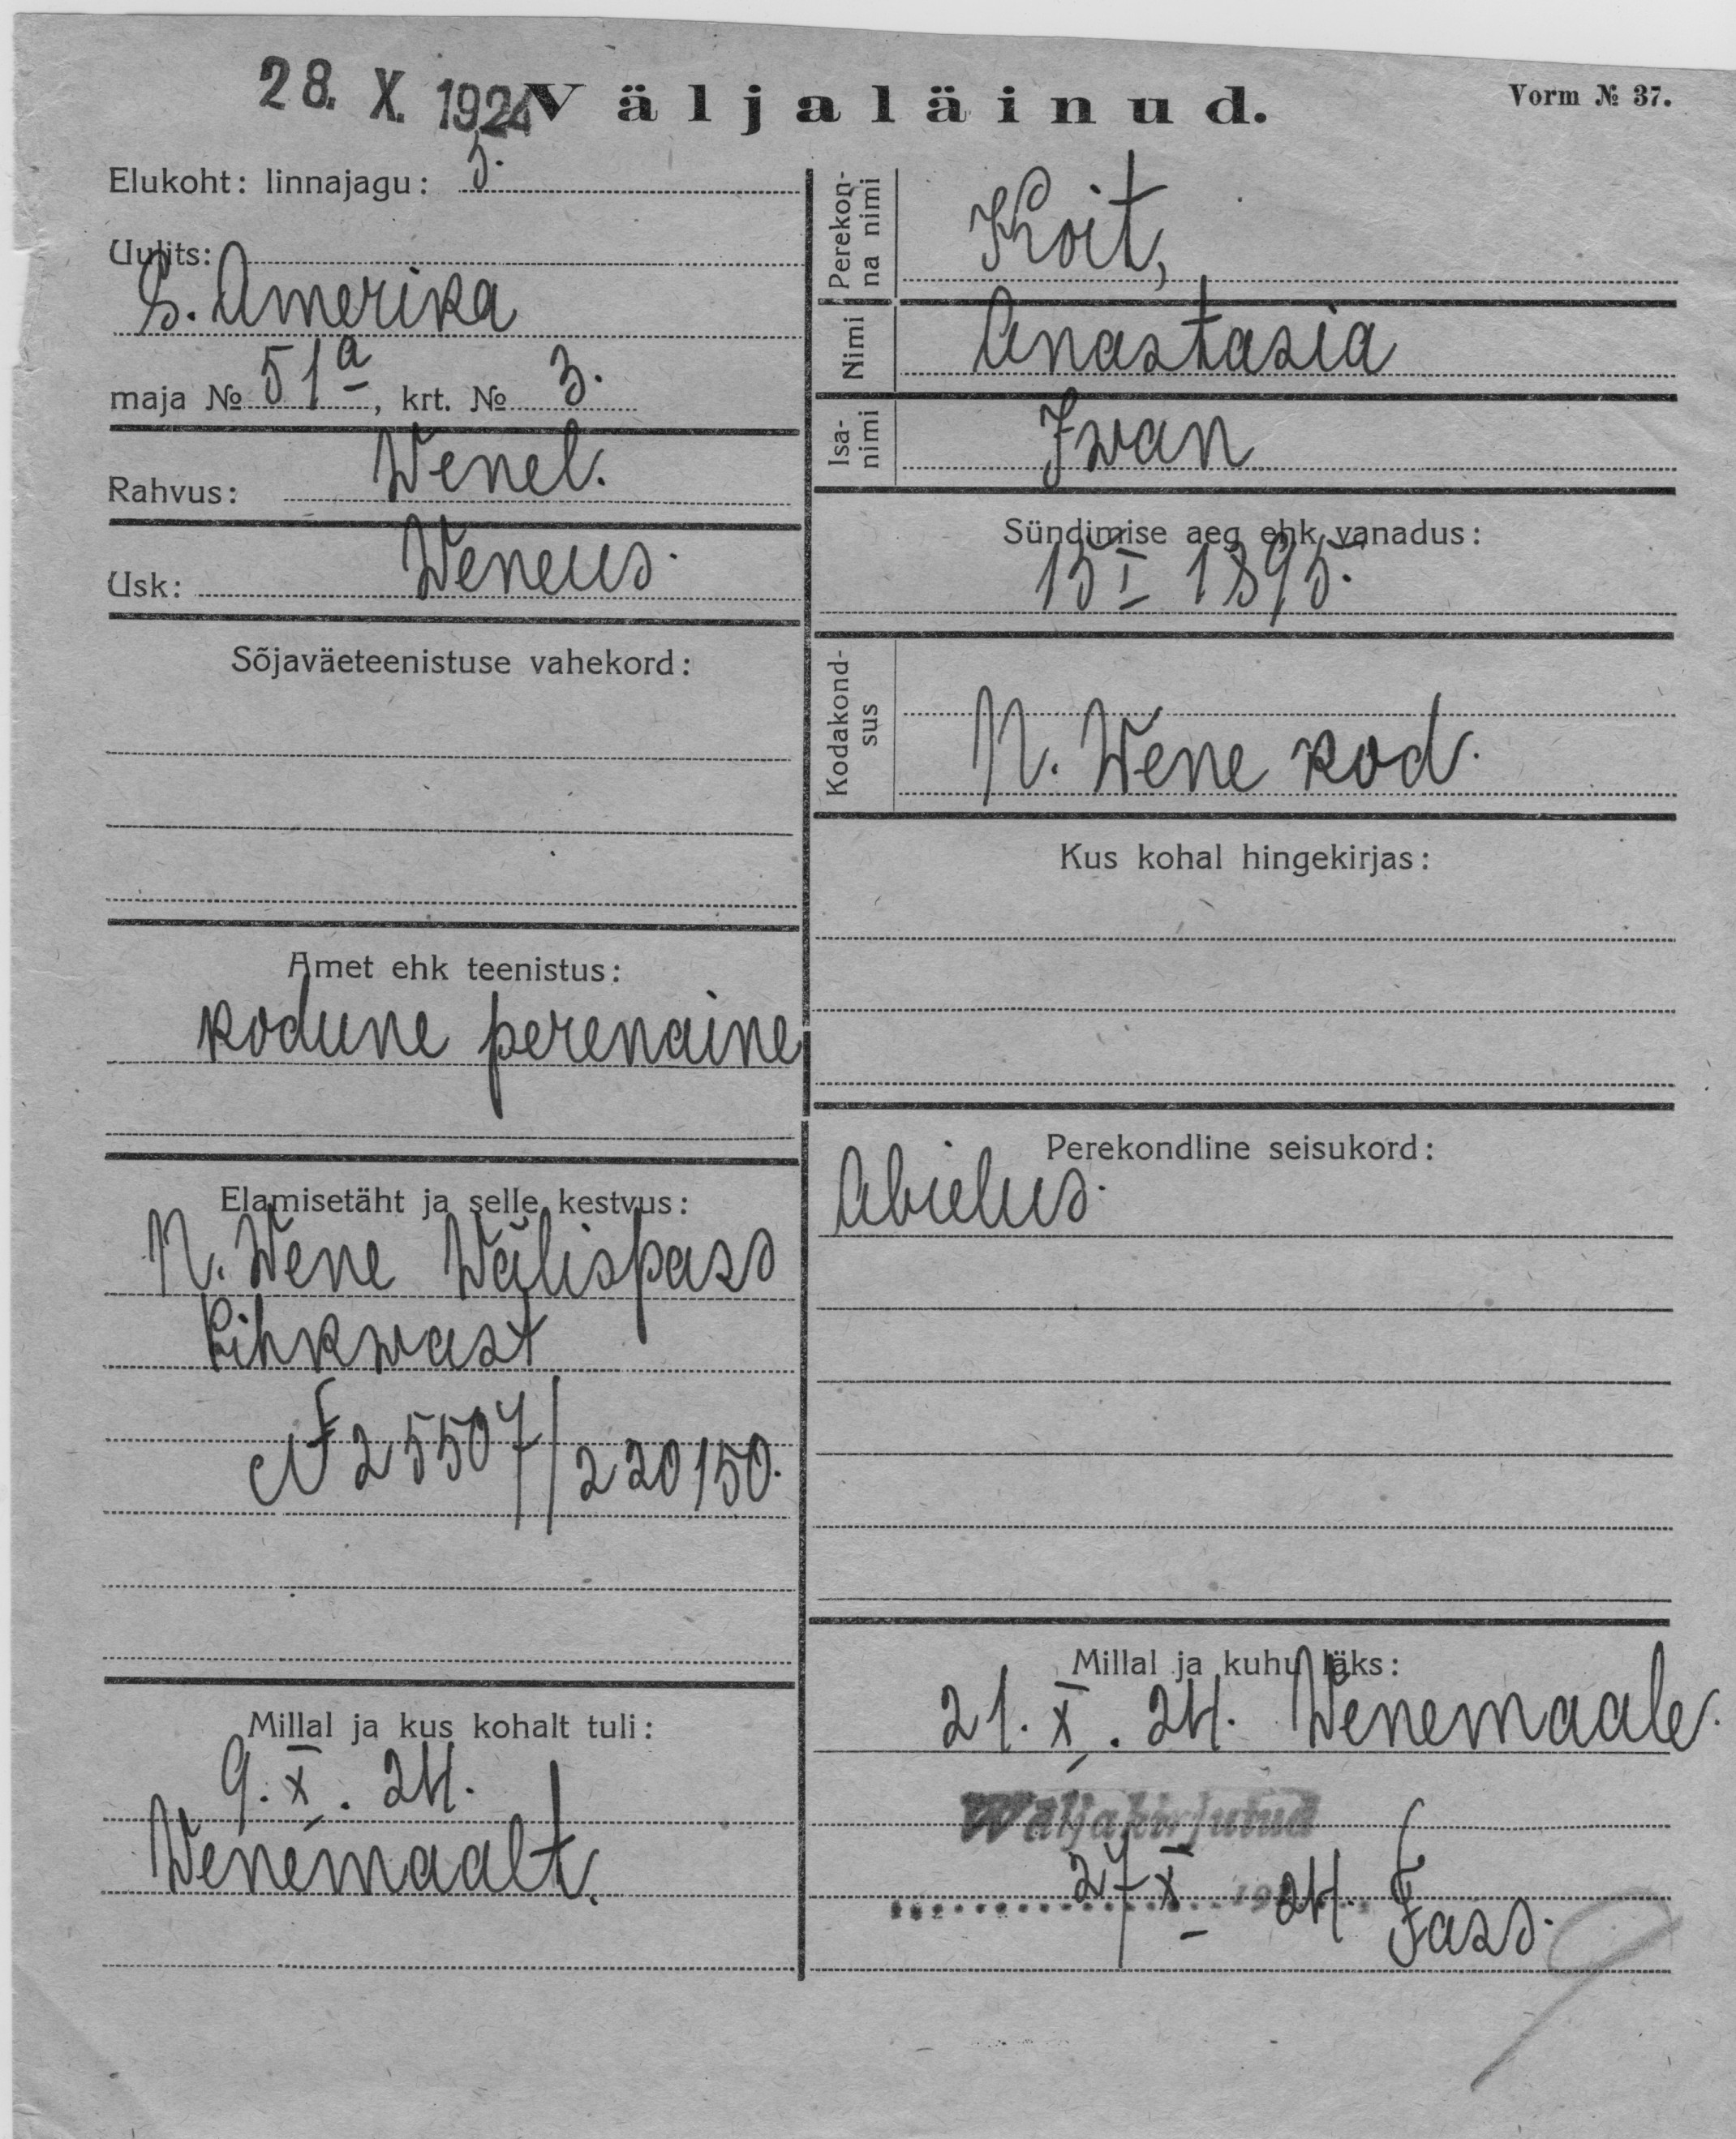 28. X. 1924
Väljaläinud.
Vorm № 37.
Elukoht: linnajagu: 5.
Uulits:
S. Amerika
maja № 51a, krt. № 3.
Rahvus: Wenel.
Usk: Weneus.
Sõjaväeteenistuse vahekord:
Amet ehk teenistus:
kodune perenaine
Elamisetäht ja selle kestvus:
N. Wene Wälispass
Pihkwast
№ 25507/220150.
Millal ja kus kohalt tuli:
9. X. 24.
Wenemaalt.
Perekonna nimi Koit,
Nimi Anastasia
Isanimi Iwan
Sündimise aeg ehk vanadus:
15 I 1895.
Kodakondsus
N. Wene kod.
Kus kohal hingekirjas:
Perekondline seisukord:
Abielus.
Millal ja kuhu läks:
21. X. 24. Wenemaale.
Wäljakirjutud
27 X 24. Fass.